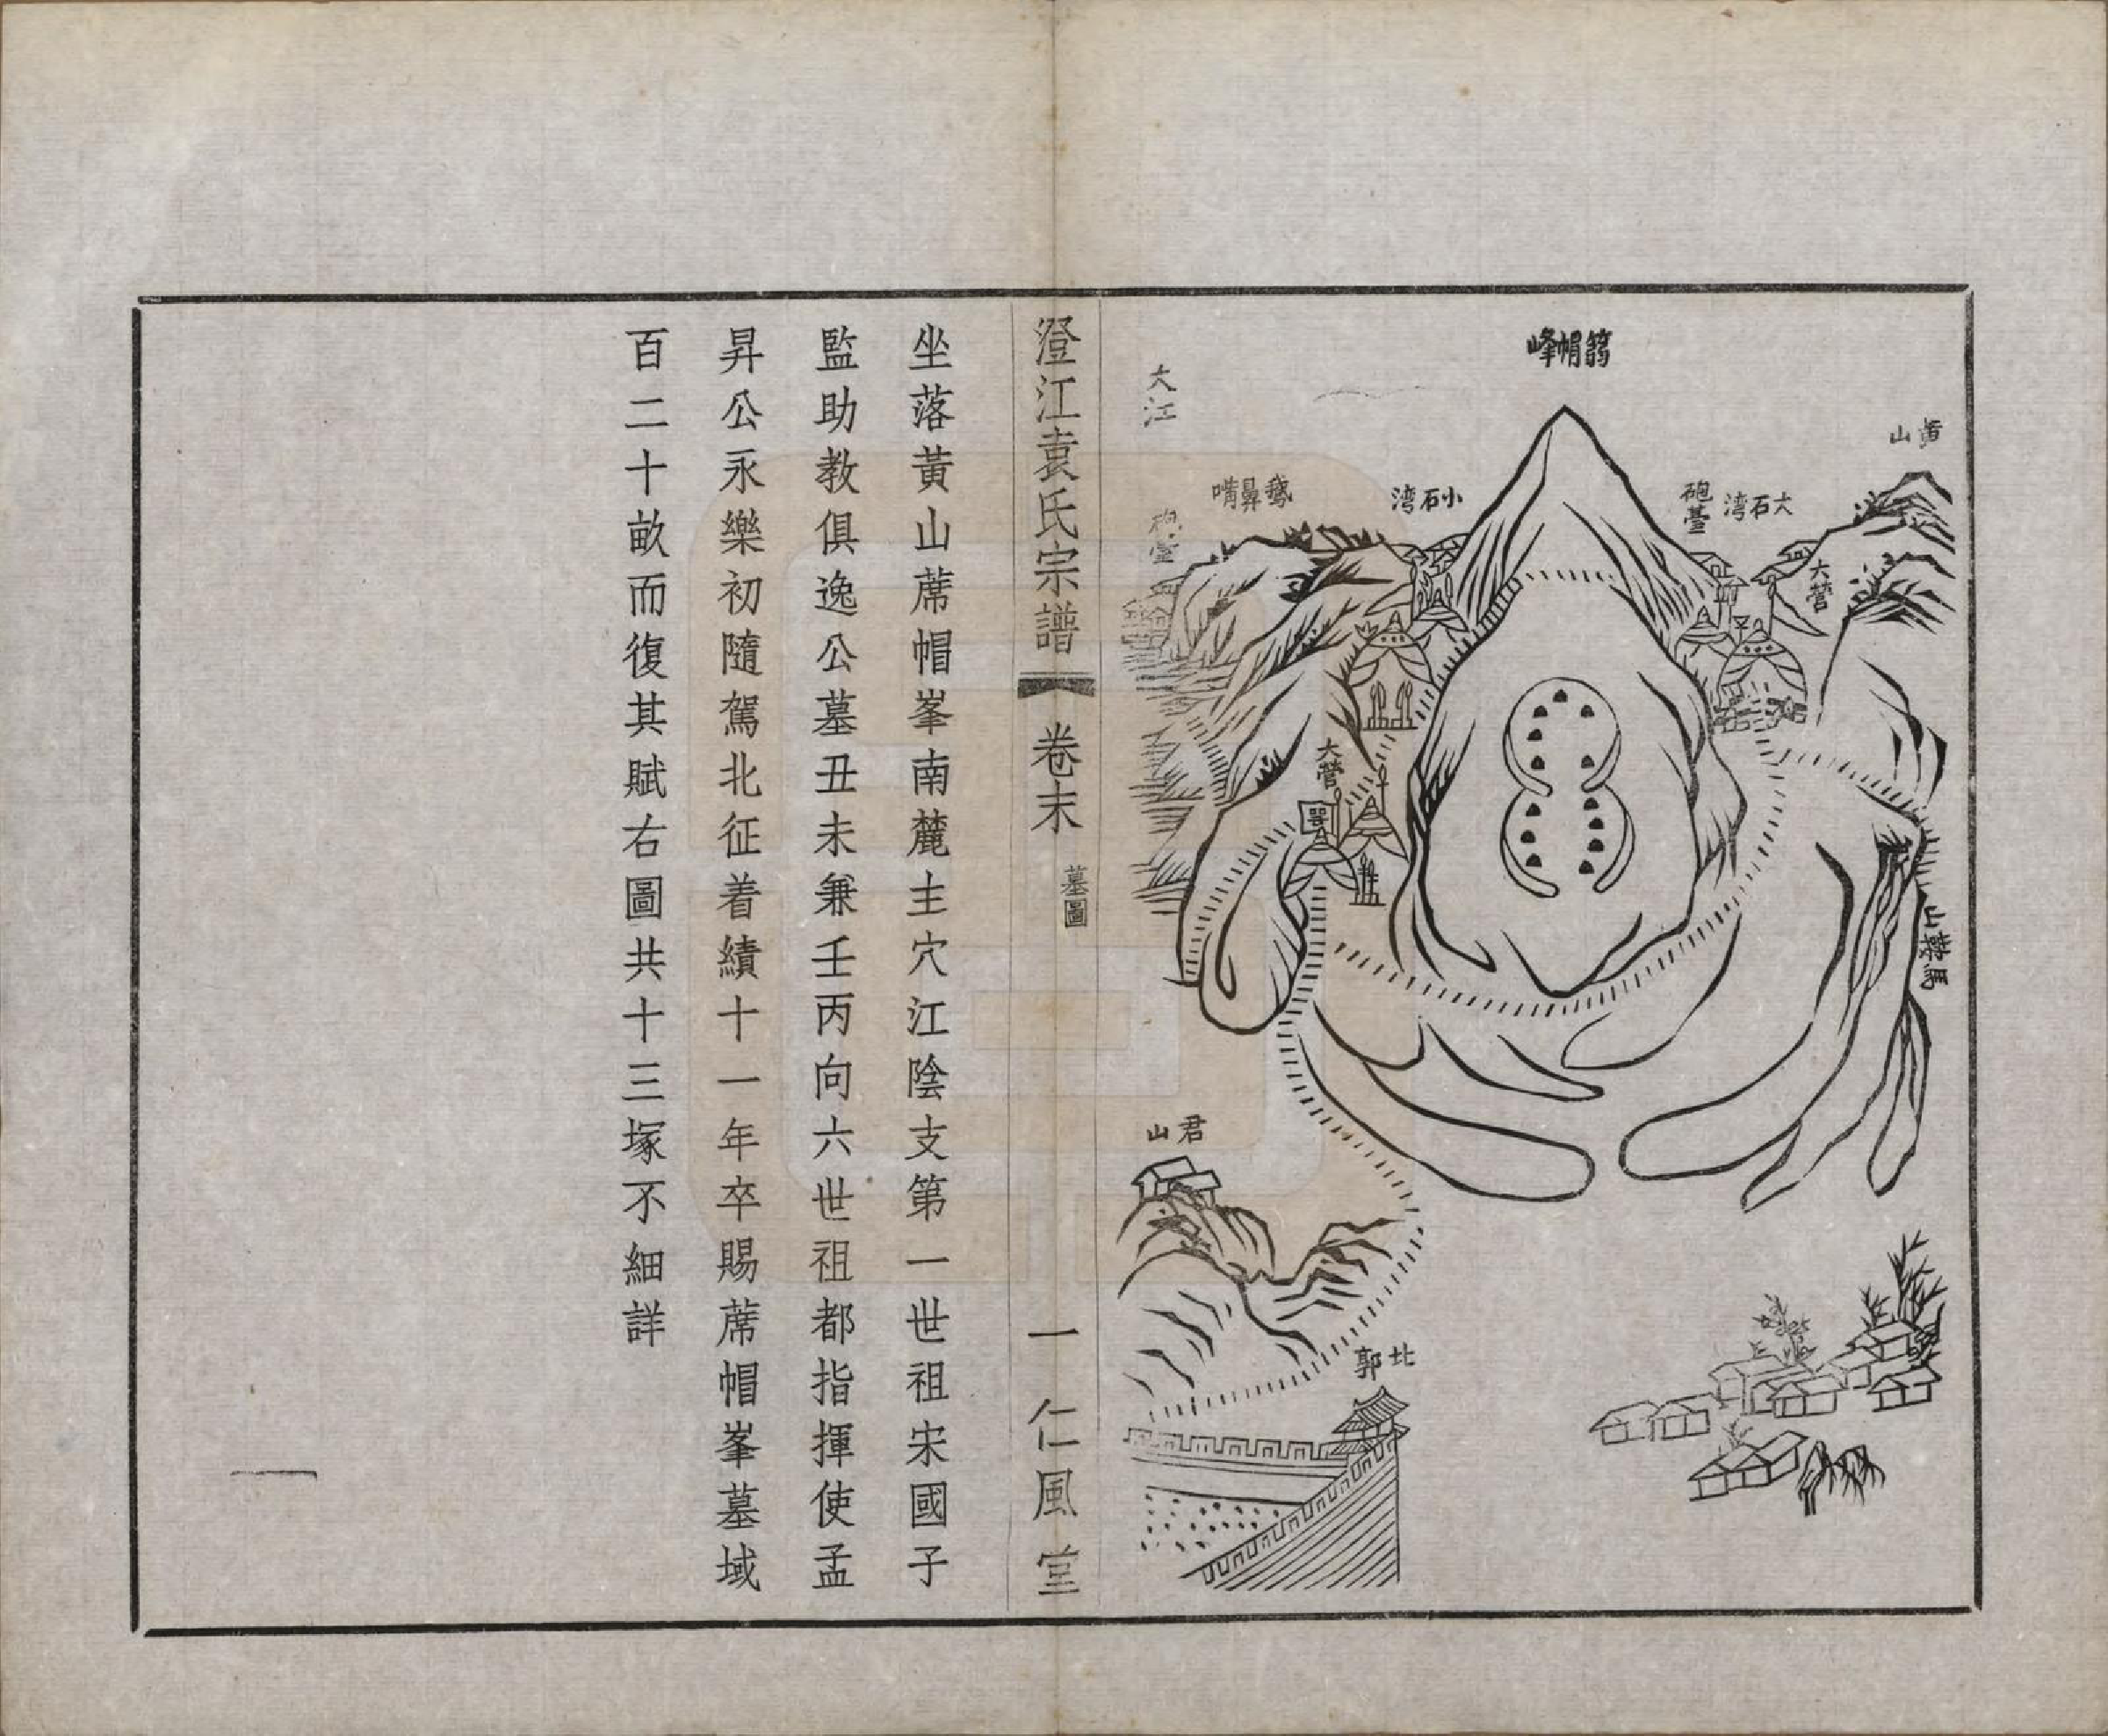 蓆帽峰
黃山
大石湾
砲臺
大營
小石湾
鵝鼻嘴
大江
砲臺
大營
馬鞍山
君山
北郭
澄江袁氏宗譜 卷末 墓圖 一 仁風堂
坐落黃山蓆帽峯南麓主穴江陰支第一世祖宋國子
監助教俱逸公墓丑未兼壬丙向六世祖都指揮使孟
昇公永樂初隨駕北征着績十一年卒賜蓆帽峯墓域
百二十畝而復其賦右圖共十三塚不細詳